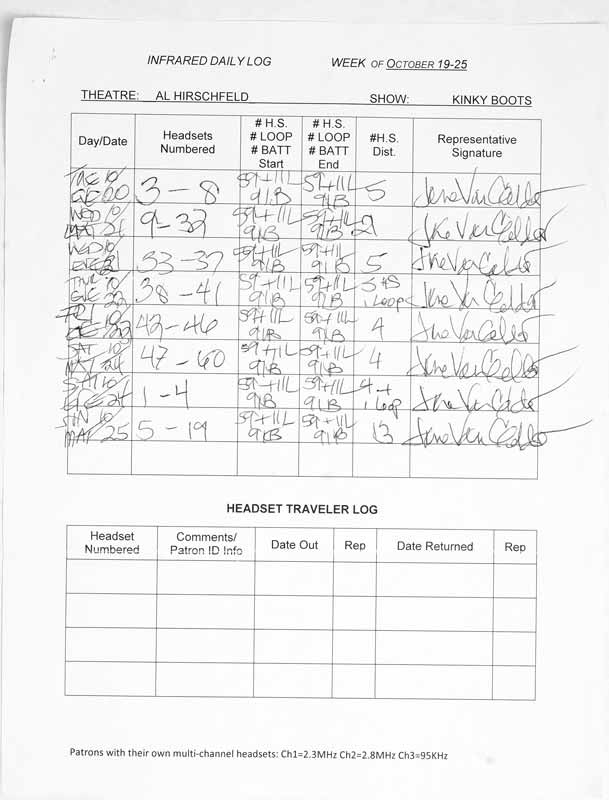 INFRARED DAILY LOG WEEK OF OCTOBER 19-25
THEATRE: AL HIRSCHFELD SHOW: KINKY BOOTS
Day/Date
Headsets
Numbered
# H.S.
# LOOP
# BATT
Start
# H.S.
# LOOP
# BATT
End
#H.S.
Dist.
Representative
Signature
TUE 10/
EVE 20
3-8
59+11L
91B
59+11L
91B
5
WED 10/
MAT 21
9-32
59+11L
91B
59+11L
91B
21
WED 10/
EVE 21
33-37
59+11L
91B
59+11L
91B
5
THU 10/
EVE 22
38-41
59+11L
91B
59+11L
91B
3 HS
1 Loop
FRI 10/
EVE 23
42-46
59+11L
91B
59+11L
91B
4
SAT 10/
MAT 24
47-60
59+11L
91B
59+11L
91B
4
SAT 10/
EVE 24
1-4
59+11L
91B
59+11L
91B
4+
1 Loop
SUN 10/
MAT 25
5-19
59+11L
91B
59+11L
91B
13
HEADSET TRAVELER LOG
Headset
Numbered
Comments/
Patron ID Info
Date Out
Rep
Date Returned
Rep
Patrons with their own multi-channel headsets: Ch1=2.3MHz Ch2=2.8MHz Ch3=95KHz